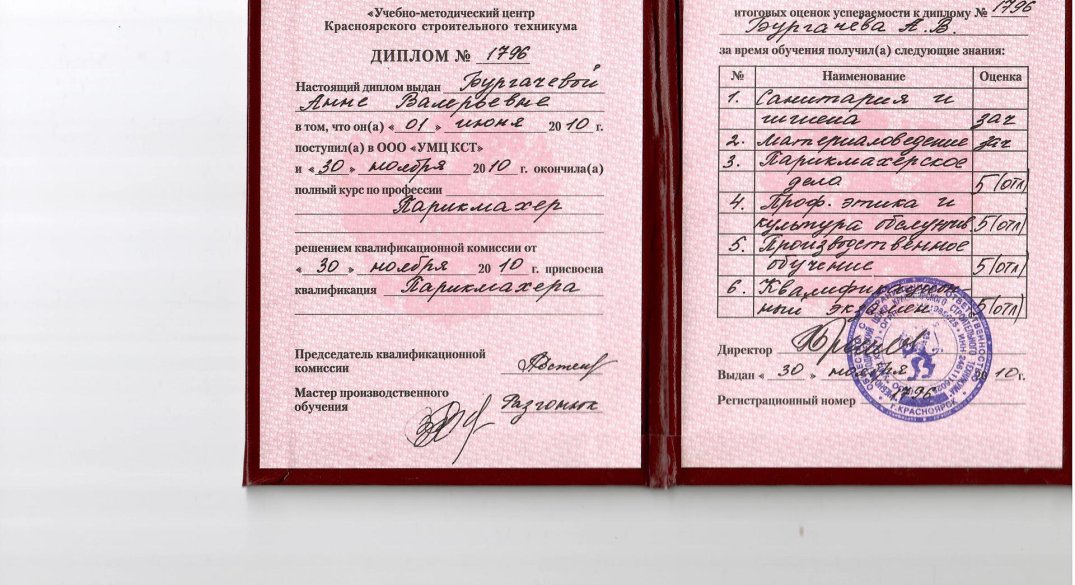 «Учебно-методический центр
Красноярского строительного техникума
ДИПЛОМ № 1796
Настоящий диплом выдан Бургачевой
Анне Валерьевне
в том, что он(а) «01» июня 2010 г.
поступил(а) в ООО «УМЦ КСТ»
и «30» ноября 2010 г. окончила(а)
полный курс по профессии
Парикмахер
решением квалификационной комиссии от
«30» ноября 2010 г. присвоена
квалификация Парикмахера
Председатель квалификационной
комиссии
Мастер производственного
обучения
итоговых оценок успеваемости к диплому № 1796
Бургачева А.В.
за время обучения получил(а) следующие знания:
№ Наименование Оценка
1. Санитария и
гигиена зач
2. Материаловедение зач
3. Парикмахерское
дело 5(отл)
4. Проф. этика и
культура обслужив. 5(отл)
5. Производственное
обучение 5(отл)
6. Квалификацион-
ный экзамен 5(отл)
Директор
Выдан «30» ноября 2010г.
Регистрационный номер 1796
г.КРАСНОЯРСК